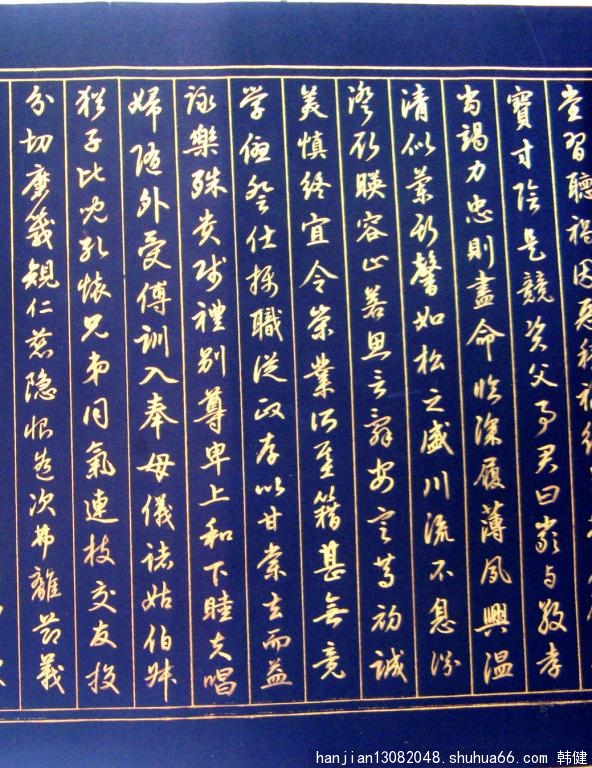 堂習聽禍因惡積福緣
寶寸陰是競資父事君曰嚴与敬孝
當竭力忠則盡命臨深履薄夙興温
清似蘭斯馨如松之盛川流不息渊
澄取暎容止若思言辭安定篤初誠
美慎終宜令榮業所基籍甚無竟
学優登仕攝職從政存以甘棠去而益
詠樂殊貴賤禮別尊卑上和下睦夫唱
婦隨外受傅訓入奉母儀諸姑伯叔
猶子比兒孔懷兄弟同氣連枝交友投
分切磨箴規仁慈隐惻造次弗離節義
hanjian13082048.shuhua66.com 韩健